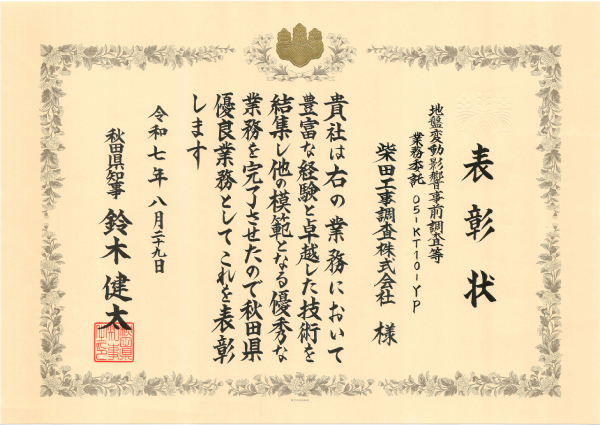 表彰状
地盤変動影響事前調査等
業務委託 05-KT10-YP
柴田工事調査株式会社 様
貴社は右の業務において
豊富な経験と卓越した技術を
結集し他の模範となる優秀な
業務を完了させたので秋田県
優良業務としてこれを表彰
します
令和七年八月二十九日
秋田県知事 鈴木健太